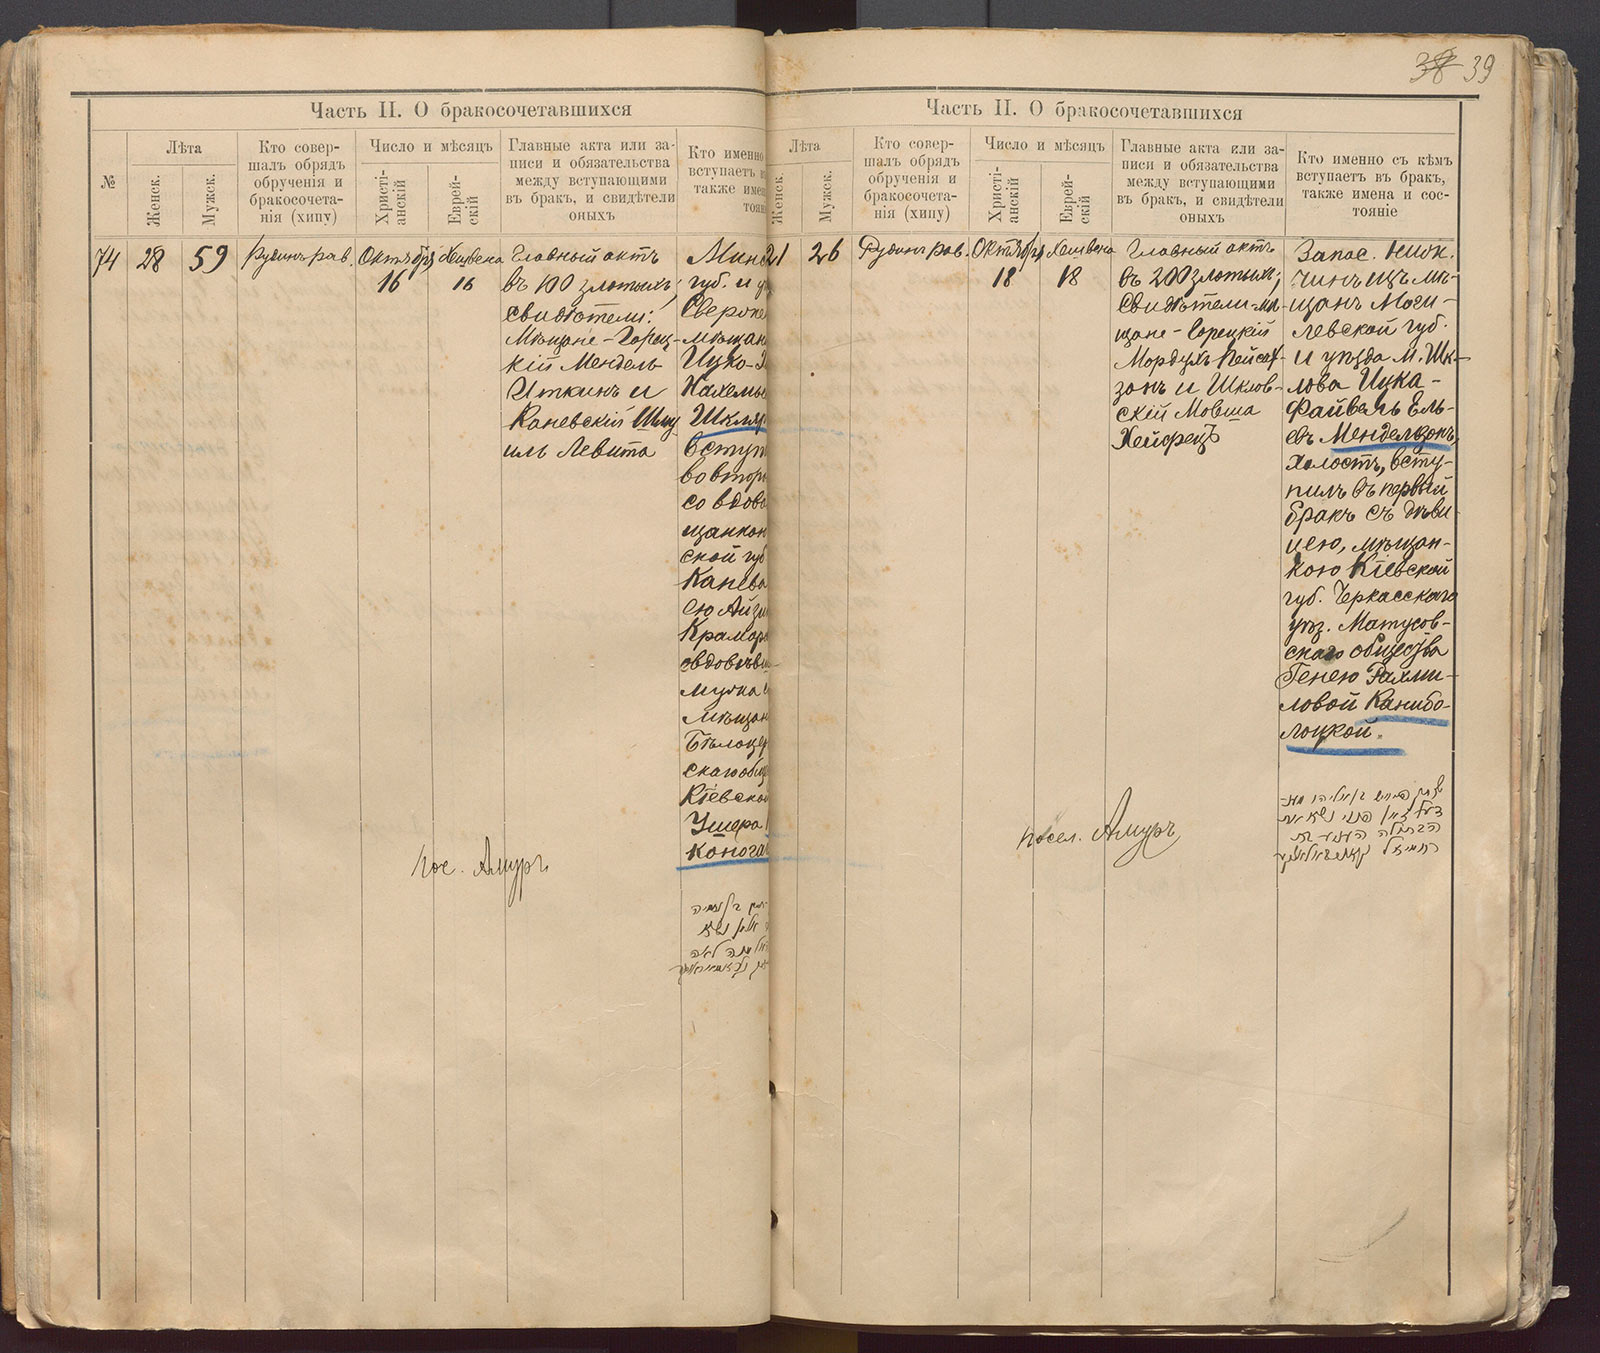 Часть II. О бракосочетавшихся
№
Лѣта
Женск.
Мужск.
Кто совер-
шалъ обрядъ
обрученія и
бракосочета-
нія (хипу)
Число и мѣсяцъ
Христі-
анскій
Еврей-
скій
Главные акта или за-
писи и обязательства
между вступающими
въ бракъ, и свидѣтели
оныхъ
Кто именно
вступаетъ
также имен
тояні
74
28
59
Рубинъ рав.
Октября
16
Хешвена
16
Главный актъ
въ 100 злотыхъ;
свидѣтели:
Мѣщане - Горец-
кій Мендель
Иткинъ и
Каневскій Шму
иль Левита
Минс
губ. и у
Сверже
мѣщан
Ицко-
Нахемье
Шкляр
вступ
во втор
со вдово
щанкою
ской губ
Канева
ею
Крамар
овдовѣв
мужа
мѣщан
Бѣлоцер
скаго общ
Кіевской
Ушера
Конога
пос. Амуръ
38 39
Часть II. О бракосочетавшихся
Лѣта
Женск.
Мужск.
Кто совер-
шалъ обрядъ
обрученія и
бракосочета-
нія (хипу)
Число и мѣсяцъ
Христі-
анскій
Еврей-
скій
Главные акта или за-
писи и обязательства
между вступающими
въ бракъ, и свидѣтели
оныхъ
Кто именно съ кѣмъ
вступаетъ въ бракъ,
также имена и сос-
тояніе
21
26
Рубинъ рав.
Октября
18
Хешвена
18
Главный актъ
въ 200 злотыхъ;
Свидѣтели-мѣ
щане - Горецкій
Мордухъ Пейсах-
зонъ и Шклов-
скій Мовша
Хейфецъ
Запас. нижн.
чинъ изъ мѣ-
щанъ Моги-
левской губ.
и уѣзда м. Шк-
лова Ицка-
Файвель Ель-
евъ Мендельзонъ,
холостъ, всту-
пилъ въ первый
бракъ съ дѣви-
цею, мѣщан-
кою Кіевской
губ. Черкасскаго
уѣз. Матусов-
скаго общества
Генею Рахми-
ловой Канибо-
лоцкой.
посел. Амуръ